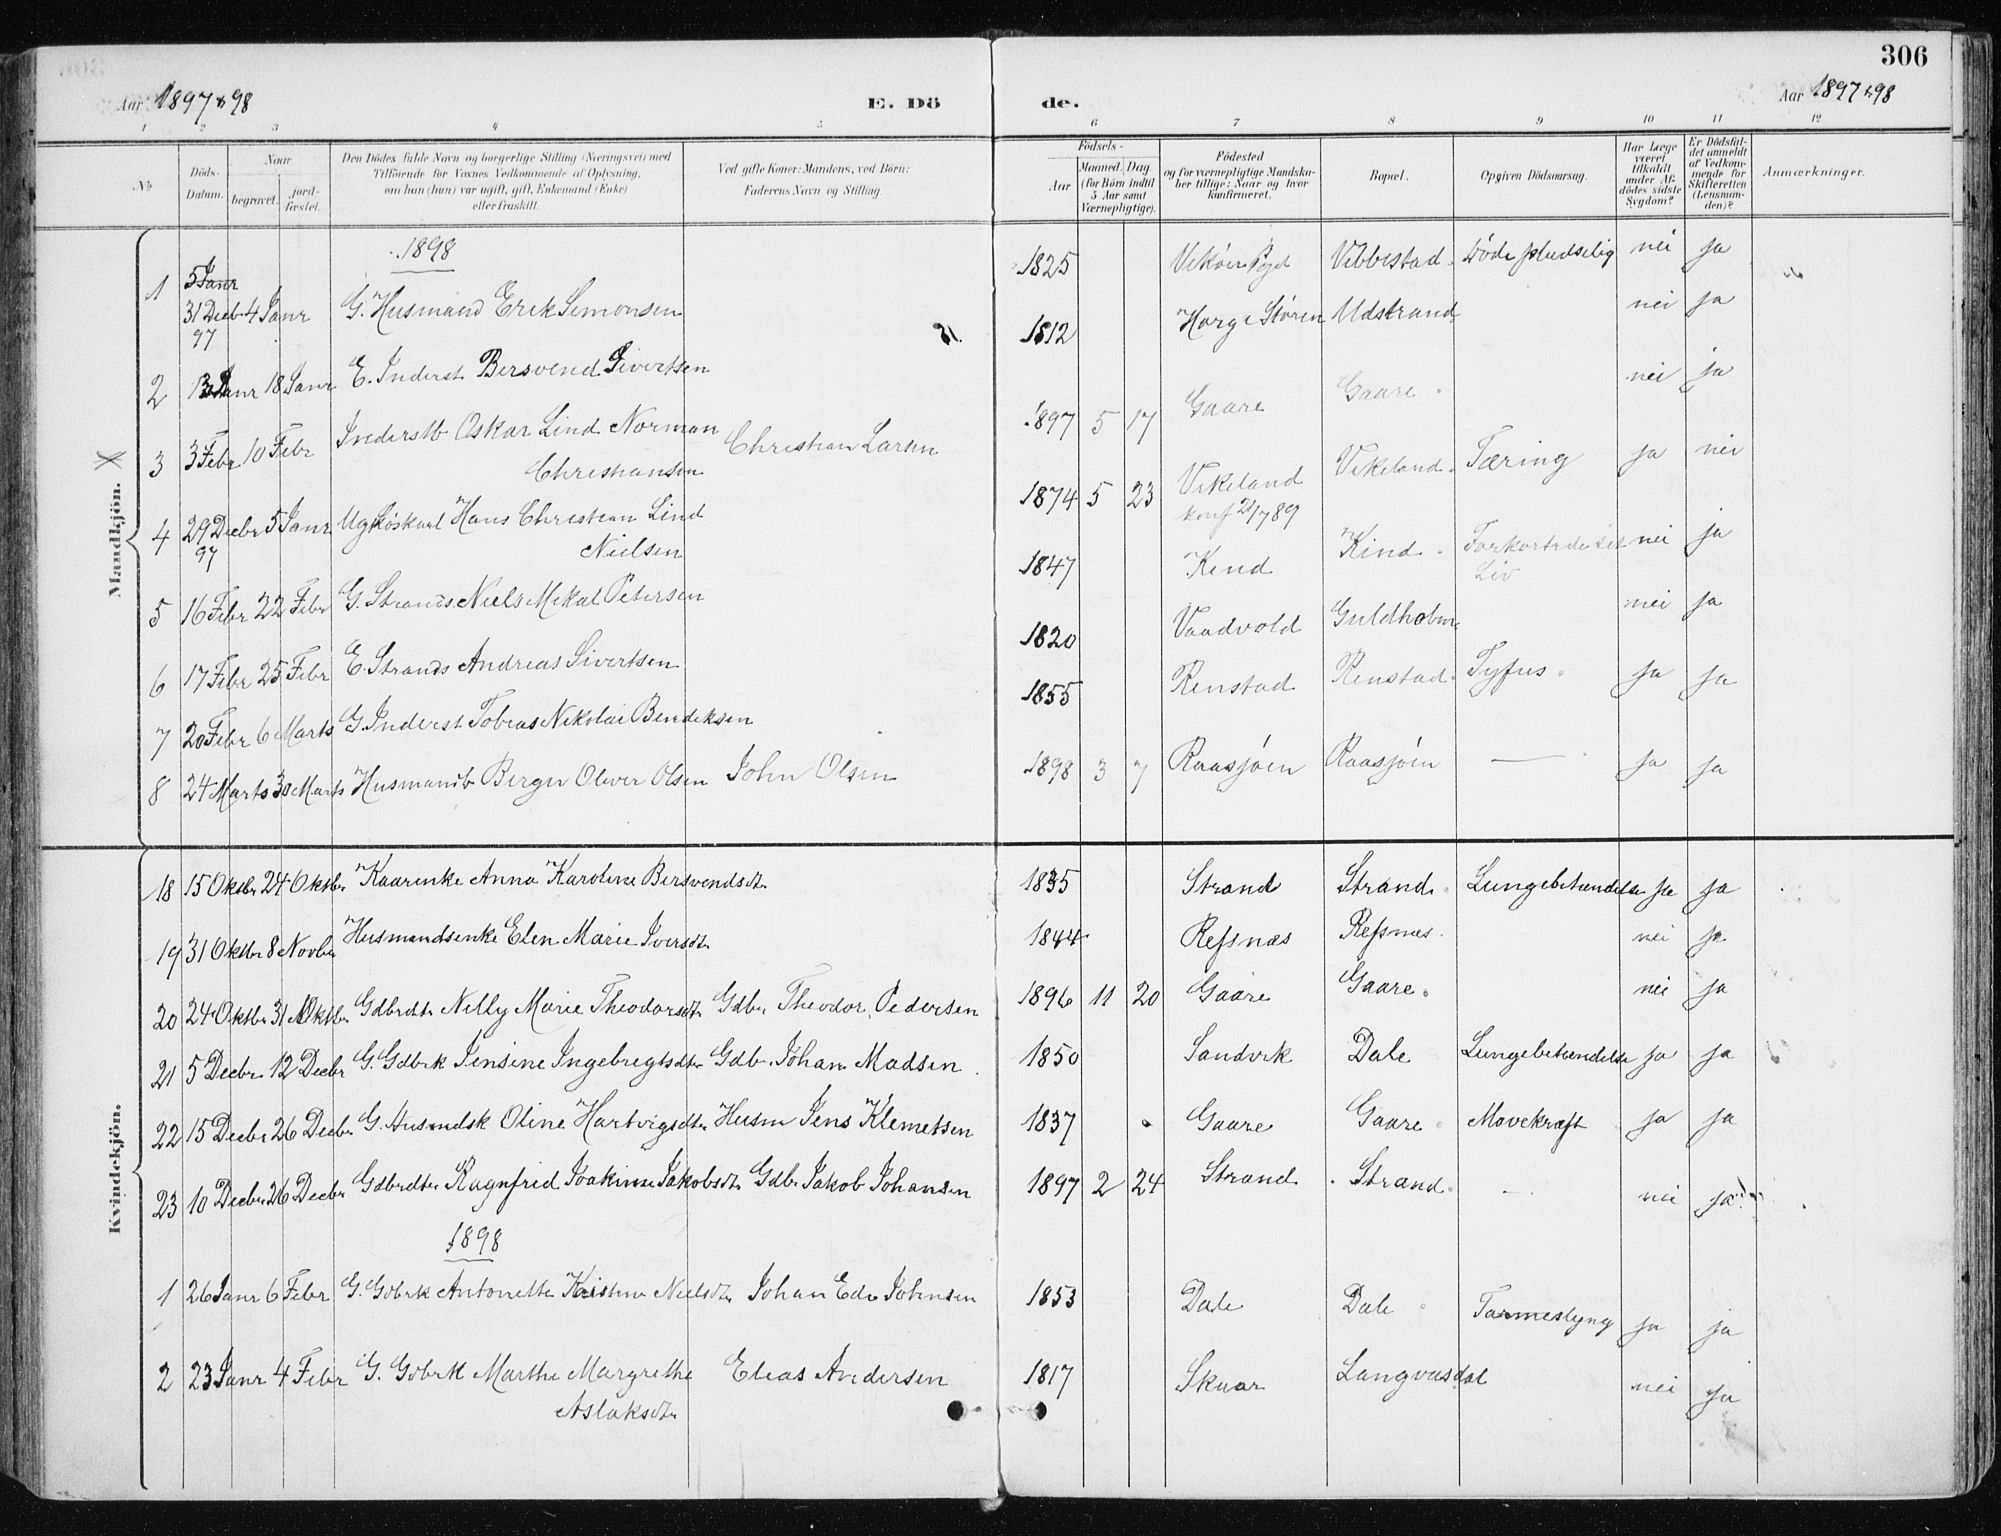 306
Aar 1897 & 98 E. Dö de. Aar 1897 & 98
1 2 3 4 5 6 7 8 9 10 11 12
No
Döds-Datum.
Naar
begravet.
jord-fæstet.
Den Dödes fulde Navn og borgerlige Stilling (Næringsvei) med
Tilföiende for Voxnes Vedkommende af Oplysning,
om han (hun) var ugift, gift, Enkemand (Enke)
eller fraskilt.
Ved gifte Koner: Mandens, ved Börn:
Faderens Navn og Stilling.
Födsels-
Aar
Maaned. Dag.
(for Börn indtil
5 Aar samt
Værnepligtige).
Födested
og for værnepligtige Mandska-
ber tillige: Naar og hvor
konfirmeret.
Bopæl.
Opgiven Dödsaarsag.
Har Læge
været
tilkaldt
under Af-
dödes sidste
Sygdom?
Er Dödsfal-
det anmeldt
af Vedkom-
mende for
Skifteretten
(Lensman-
den)?
Anmærkninger.
Mandkjön.
1898
1 5 Janr 31 Decb 97 4 Janr G. Husmand Erik Simonsen 1825 Vikøer Pgd Vibbestad Døde pludselig nei ja
2 13 Janr 18 Janr E. Inderst Bersvend Sivertsen 1812 Horg i Støren Udstrand nei ja
3 3 Febr 10 Febr Inderstb Oskar Lind Norman Christiansen Christian Larsen 1897 5 17 Gaare Gaare nei ja
4 29 Decbr 97 5 Janr Ugløskarl Hans Christian Lind Nielsen 1874 5 23 Vikeland konf 21/7 89 Vikeland Tæring ja nei
5 16 Febr 22 Febr G. Strands. Niels Mikal Petersen 1847 Kind Kind Forkortede sit Liv nei ja
6 17 Febr 25 Febr E. Strands Andreas Sivertsen 1820 Vaadvold Guldholmen nei ja
7 20 Febr 6 Marts G. Inderst Tobias Nikolai Bendiksen 1855 Renstad Renstad Tyfus ja ja
8 24 Marts 30 Marts Husmandb Birger Oliver Olsen John Olsen 1898 3 7 Raasjøen Raasjøen — ja ja
Kvindekjön.
18 15 Oktbr 24 Oktbr Kaarenke Anna Karoline Bersvendsdtr 1835 Strand Strand Lungebetændelse ja ja
19 31 Oktbr 8 Novbr Husmandsenke Elen Marie Iversdtr 1844 Refsnæs Refsnæs nei ja
20 24 Oktbr 31 Oktbr Gdbrdtr Nilly Marie Theodorsdtr Gdbr Theodor Pedersen 1896 11 20 Gaare Gaare nei ja
21 5 Decbr 12 Decbr G. Gdbrk Jensine Ingebregtsdtr Gdb. Johan Madsen 1850 Sandvik Dale Lungebetændelse ja ja
22 15 Decbr 26 Decbr G. Husmdsk Oline Hartvigsdtr Husm Jens Klemetsen 1837 Gaare Gaare Mavekræft ja ja
23 10 Decbr 26 Decbr Gdbrdtr Ragnfrid Joakime Jakobsdtr Gdbr Jakob Johansen 1897 2 24 Strand Strand — nei ja
1898
1 26 Janr 6 Febr G. Gdbrk Antonette Kristine Nielsdtr Johan Edv Johnsen 1853 Dale Dale Tarmeslyng ja ja
2 23 Janr 4 Febr G. Gdbrk Marthe Margrethe Aslaksdtr Elias Andersen 1817 Skaar Langvasdal nei ja